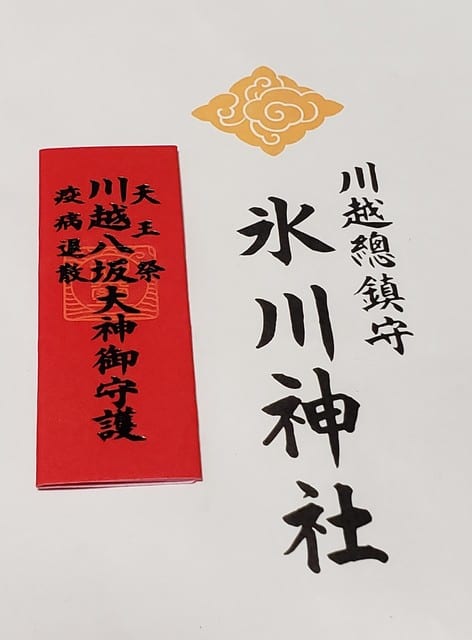 川越總鎮守
氷川神社
天王祭
川越八坂大神御守護
疫病退散